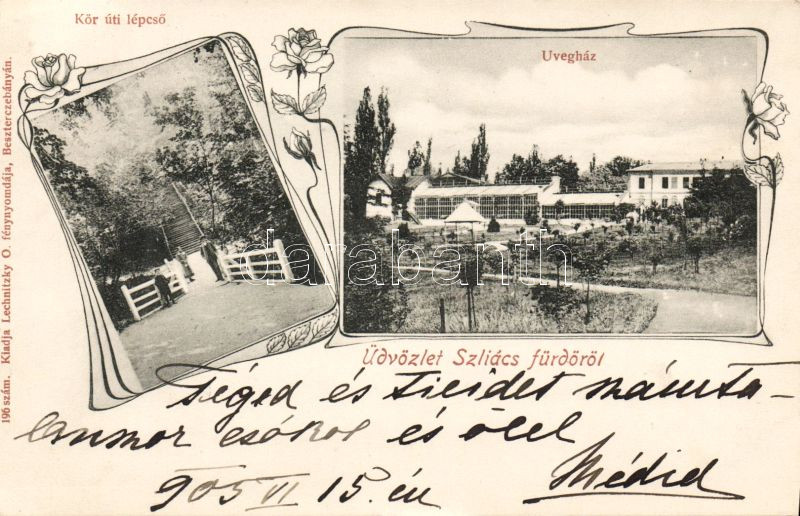 Kör úti lépcső
Uvegház
196 szám. Kiadja Lechnitzky O. fénynyomdája, Beszterczebányán.
darabanth
Üdvözlet Szliács fürdőről
Téged és Ticidet számta-
lanszor csókol és ölel
905 VI 15.én